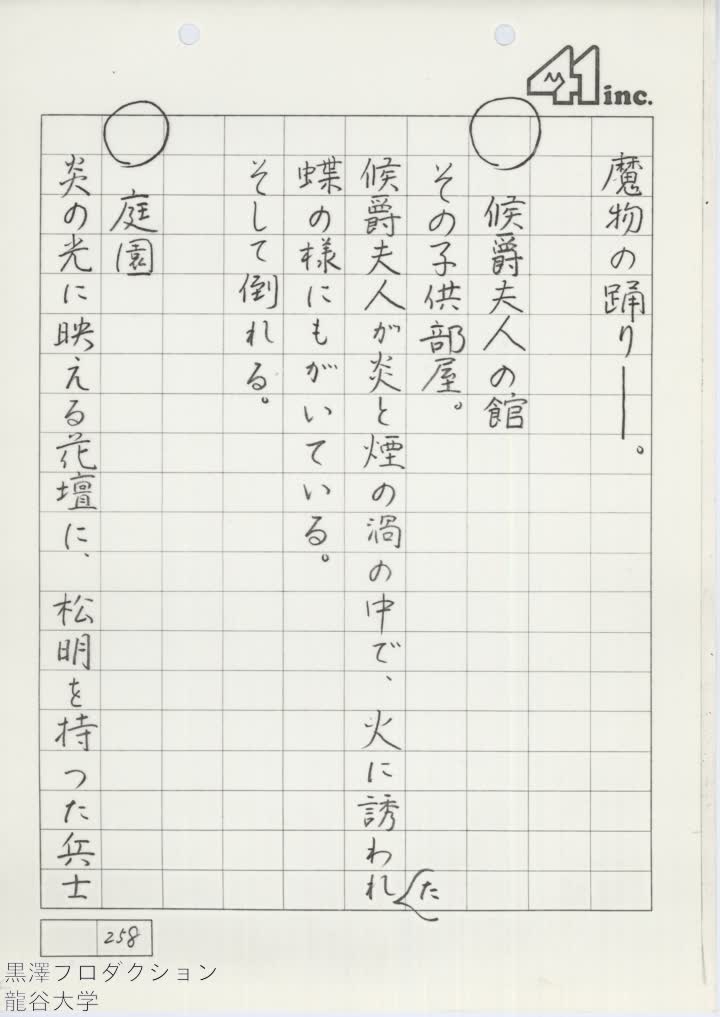 41 inc.
魔物の踊り――。
○ 侯爵夫人の館
その子供部屋。
侯爵夫人が炎と煙の渦の中で、火に誘われた
蝶の様にもがいている。
そして倒れる。
○ 庭園
炎の光に映える花壇に、松明を持つた兵士
258
黒澤フロダクション
龍谷大学